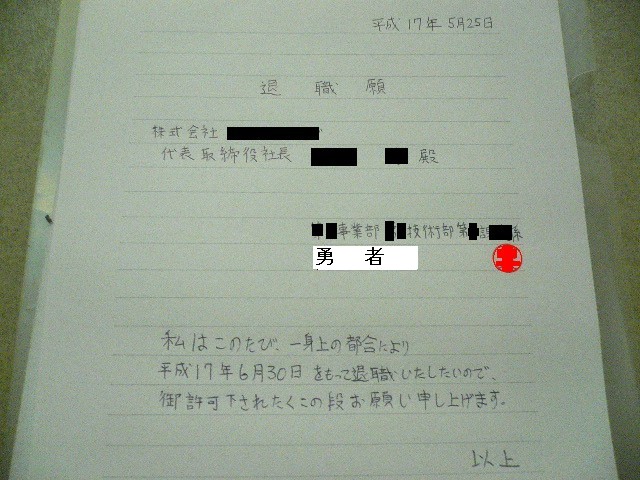 平成 17年 5月25日
退 職 願
株式会社
代表取締役社長 殿
事業部 技術部第 係
勇 者
私はこのたび、一身上の都合により
平成17年6月30日をもって退職いたしたいので、
御許可下されたくこの段お願い申し上げます。
以上